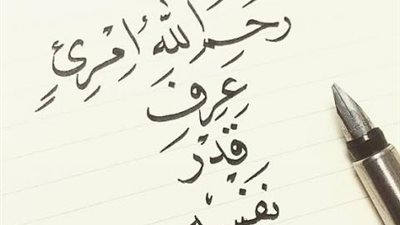 رَحِمَ اللّٰهُ اِمْرِئٍ
عِرِفِ
قِدْرِ
نَفْسِهِ